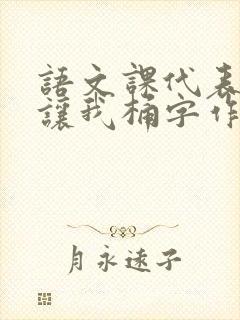 語文課代表
讓我桶字作
月永遠子